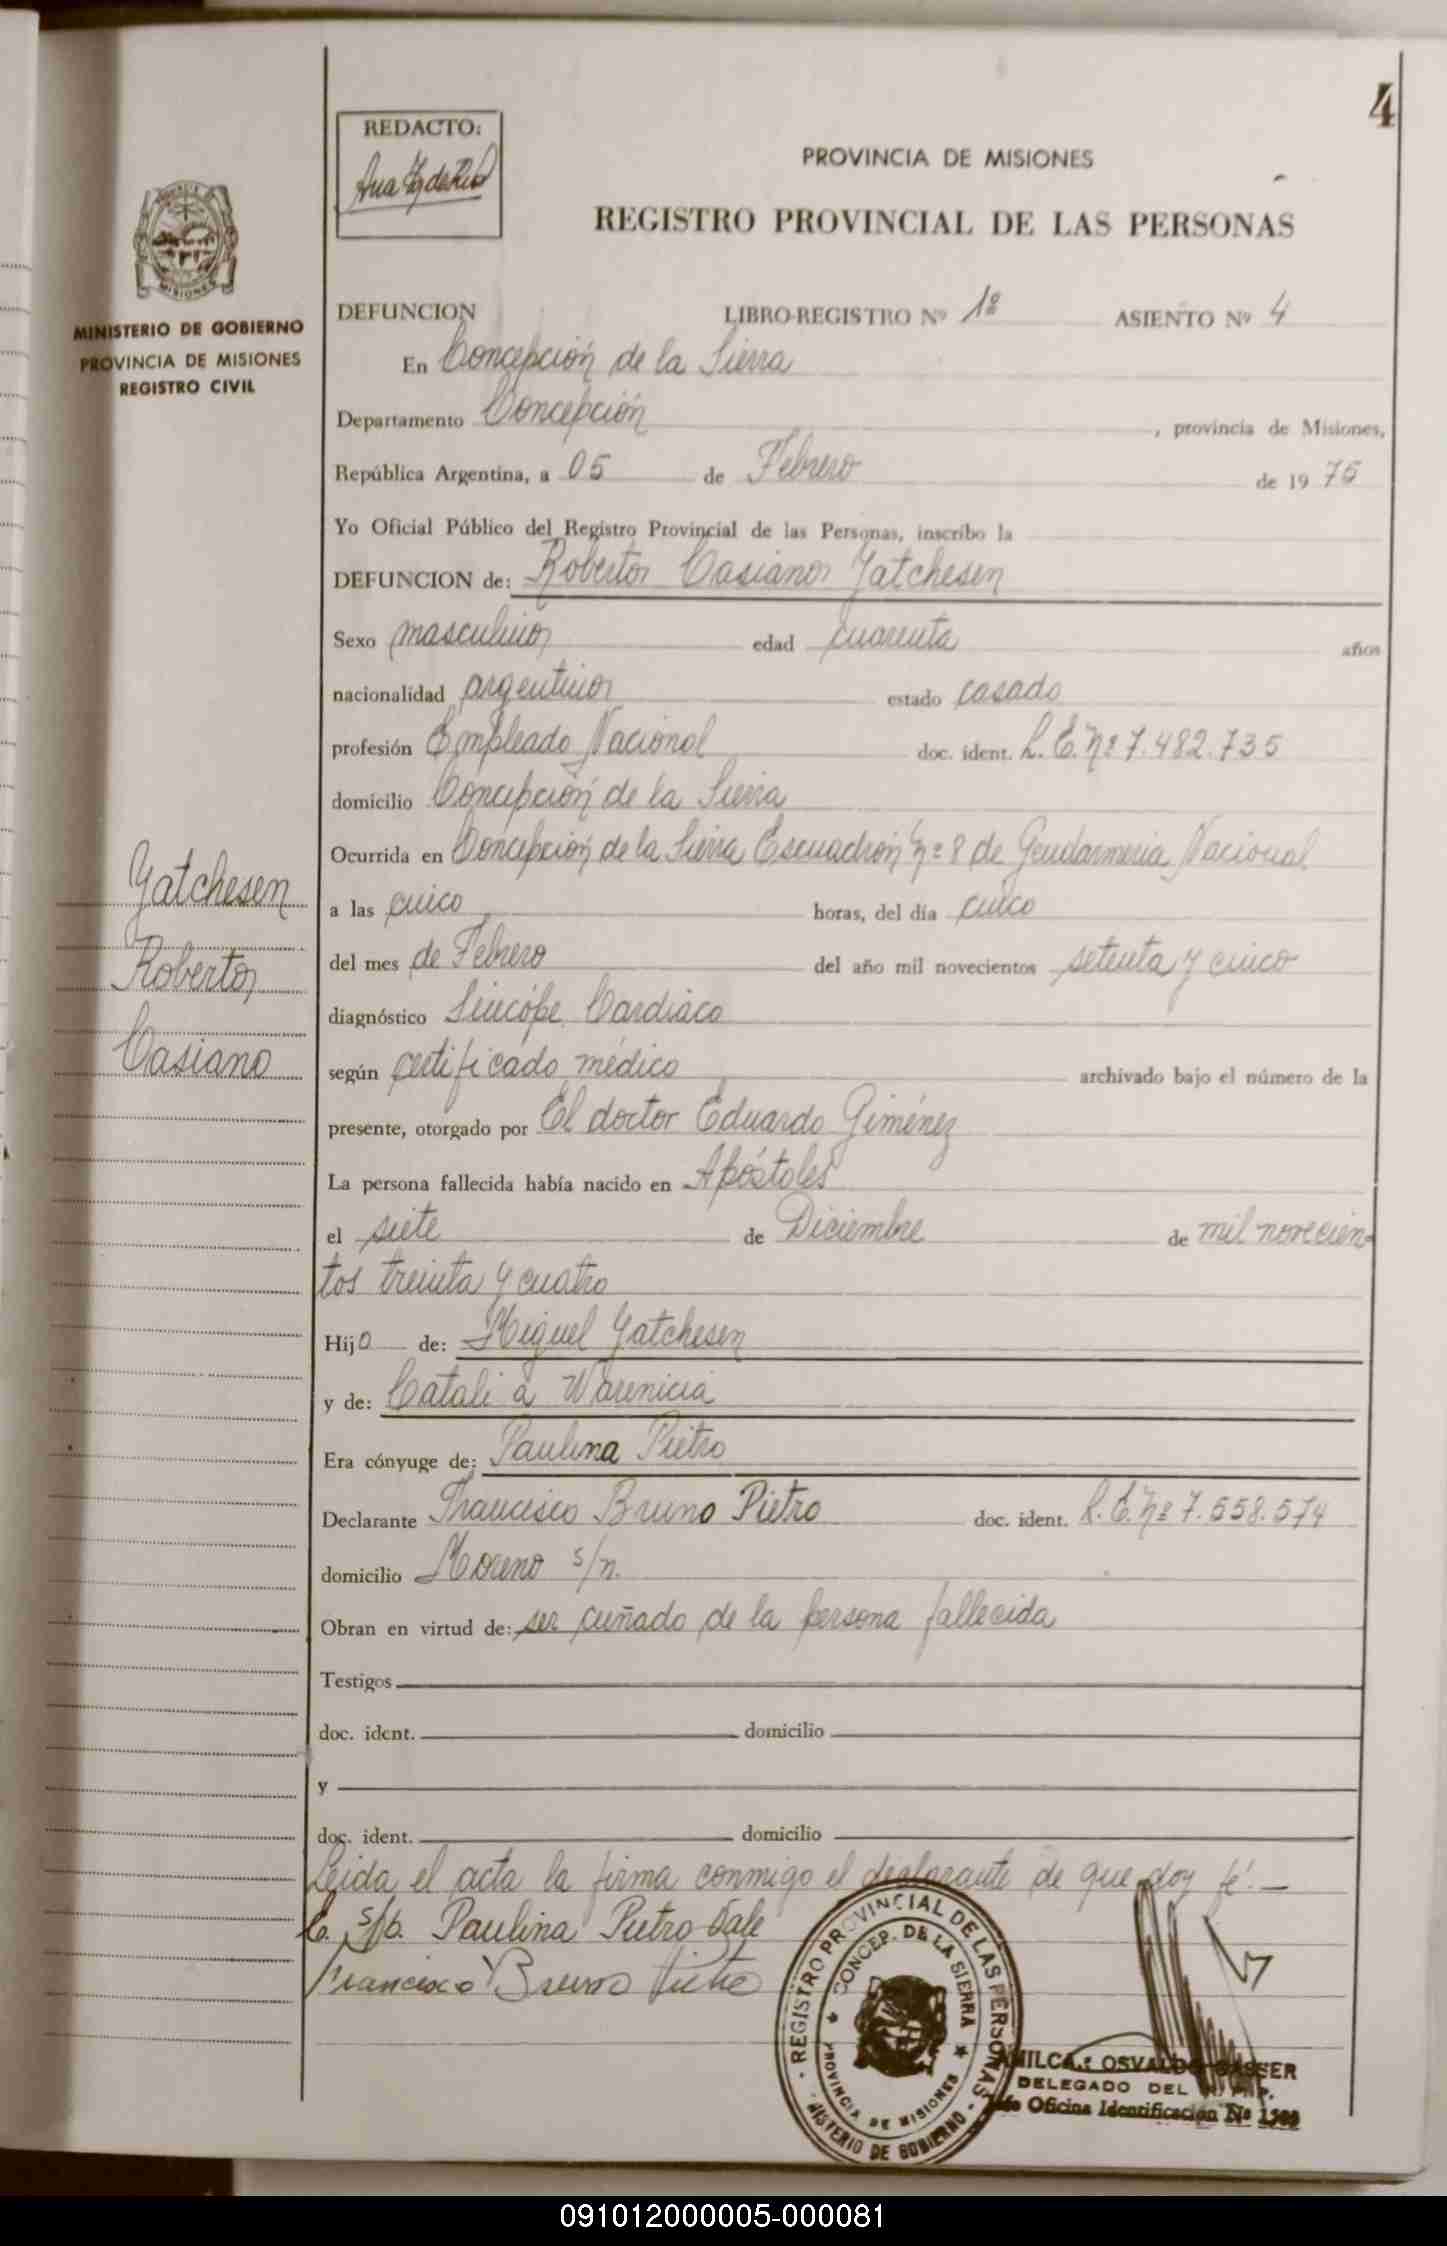 4
REDACTO:
PROVINCIA DE MISIONES
REGISTRO PROVINCIAL DE LAS PERSONAS
MISIONES
MINISTERIO DE GOBIERNO
PROVINCIA DE MISIONES
REGISTRO CIVIL
DEFUNCION LIBRO-REGISTRO Nº 1º ASIENTO Nº 4
En Concepción de la Sierra
Departamento Concepción, provincia de Misiones,
República Argentina, a 05 de Febrero de 1975
Yo Oficial Público del Registro Provincial de las Personas, inscribo la
DEFUNCION de: Roberto Casiano Yatchesen
Sexo masculino edad cuarenta años
nacionalidad argentino estado casado
profesión Empleado Nacional doc. ident. L.E. Nº 7.482.735
domicilio Concepción de la Sierra
Ocurrida en Concepción de la Sierra Escuadrón Nº 8 de Gendarmeria Nacional
a las cinco horas, del día cinco
del mes de Febrero del año mil novecientos setenta y cinco
diagnóstico Sincópe Cardiáco
según certificado médico archivado bajo el número de la
presente, otorgado por El doctor Eduardo Giménez
La persona fallecida había nacido en Apóstoles
el siete de Diciembre de mil novecien-
tos treinta y cuatro
Hijo de: Miguel Yatchesen
y de: Catali a Warenicia
Era cónyuge de: Paulina Pietro
Declarante Francisco Bruno Pietro doc. ident. L.E. Nº 7.558.574
domicilio Moreno s/n.
Obran en virtud de: ser cuñado de la persona fallecida
Testigos
doc. ident. domicilio
y
doc. ident. domicilio
Leida el acta la firma conmigo el declarante de que doy fé.—
s/b. Paulina Pietro Vale
Francisco Bruno Pietro
Yatchesen
Roberto
Casiano
REGISTRO PROVINCIAL DE LAS PERSONAS
CONCEP. DE LA SIERRA
PROVINCIA DE MISIONES
MINISTERIO DE GOBIERNO
AMILCAR OSVALDO GASSER
DELEGADO DEL R. P. P.
Oficina Identificacion Nº
091012000005-000081